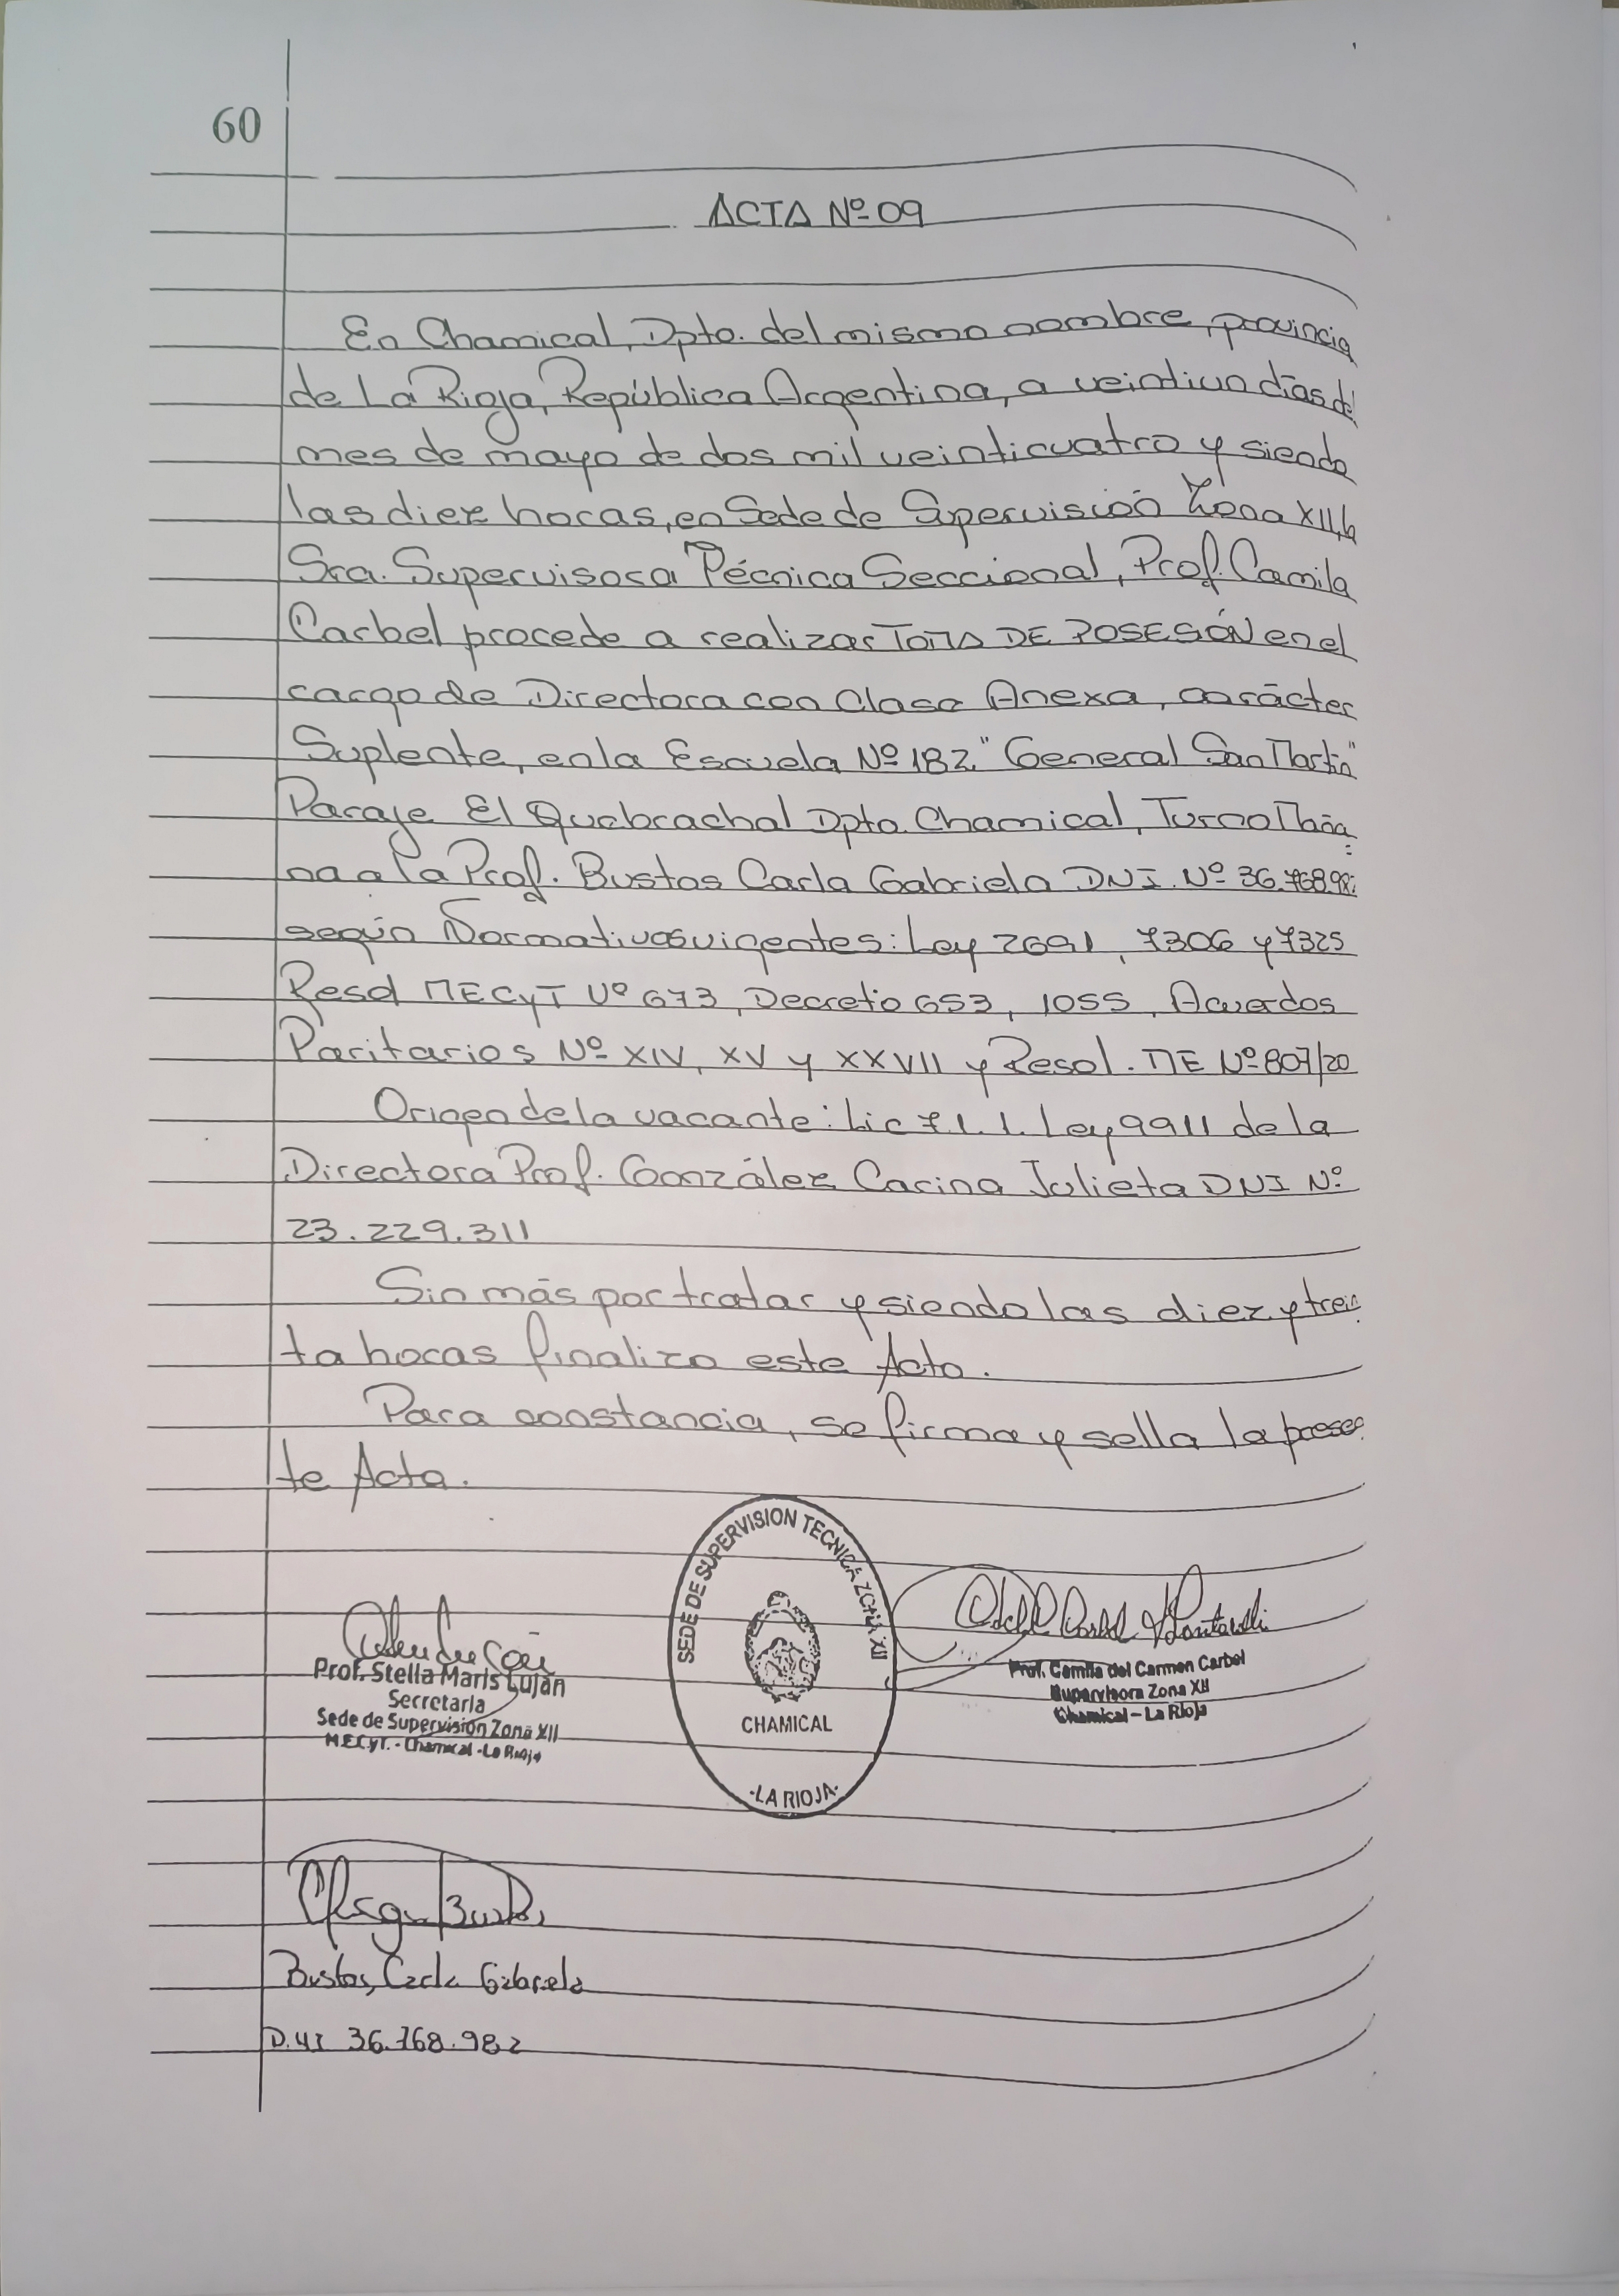 60
ACTA Nº 09
En Chamical, Dpto. del mismo nombre, provincia
de La Rioja, República Argentina, a veintiun días d
mes de mayo de dos mil veinticuatro y siendo
las diez horas, en Sede de Supervisión Zona XII, la
Sra. Supervisora Técnica Seccional, Prof. Camila
Carbel procede a realizar TOMA DE POSESIÓN en el
cargo de Directora con Clase Anexa, carácter
Suplente, en la Escuela Nº 182 "General San Martín"
Paraje El Quebrachal Dpto. Chamical, Turno Maña
na a la Prof. Bustos Carla Gabriela DNI. Nº 36.768.98
según Normativas vigentes: Ley 2691, 7306 y 7325
Resol MECyT Nº 673, Decreto 653, 1055, Acuerdos
Paritarios Nº XIV, XV y XXVII y Resol. ME Nº 807/20
Origen de la vacante: Lic 7.1.1. Ley 9911 de la
Directora Prof. González Carina Julieta DNI Nº
23.229.311
Sin más por tratar y siendo las diez y trein
ta horas finalizo este Acto.
Para constancia, se firma y sella la presen
te Acta.
SEDE DE SUPERVISION TECNICA ZONA XII
CHAMICAL
-LA RIOJA-
Prof. Stella Maris Luján
Secretaria
Sede de Supervisión Zona XII
M.E.CyT. - Chamical - La Rioja
Prof. Camila del Carmen Carbel
Supervisora Zona XII
Chamical - La Rioja
Bustos, Carla Gabriela
D.NI 36.768.982